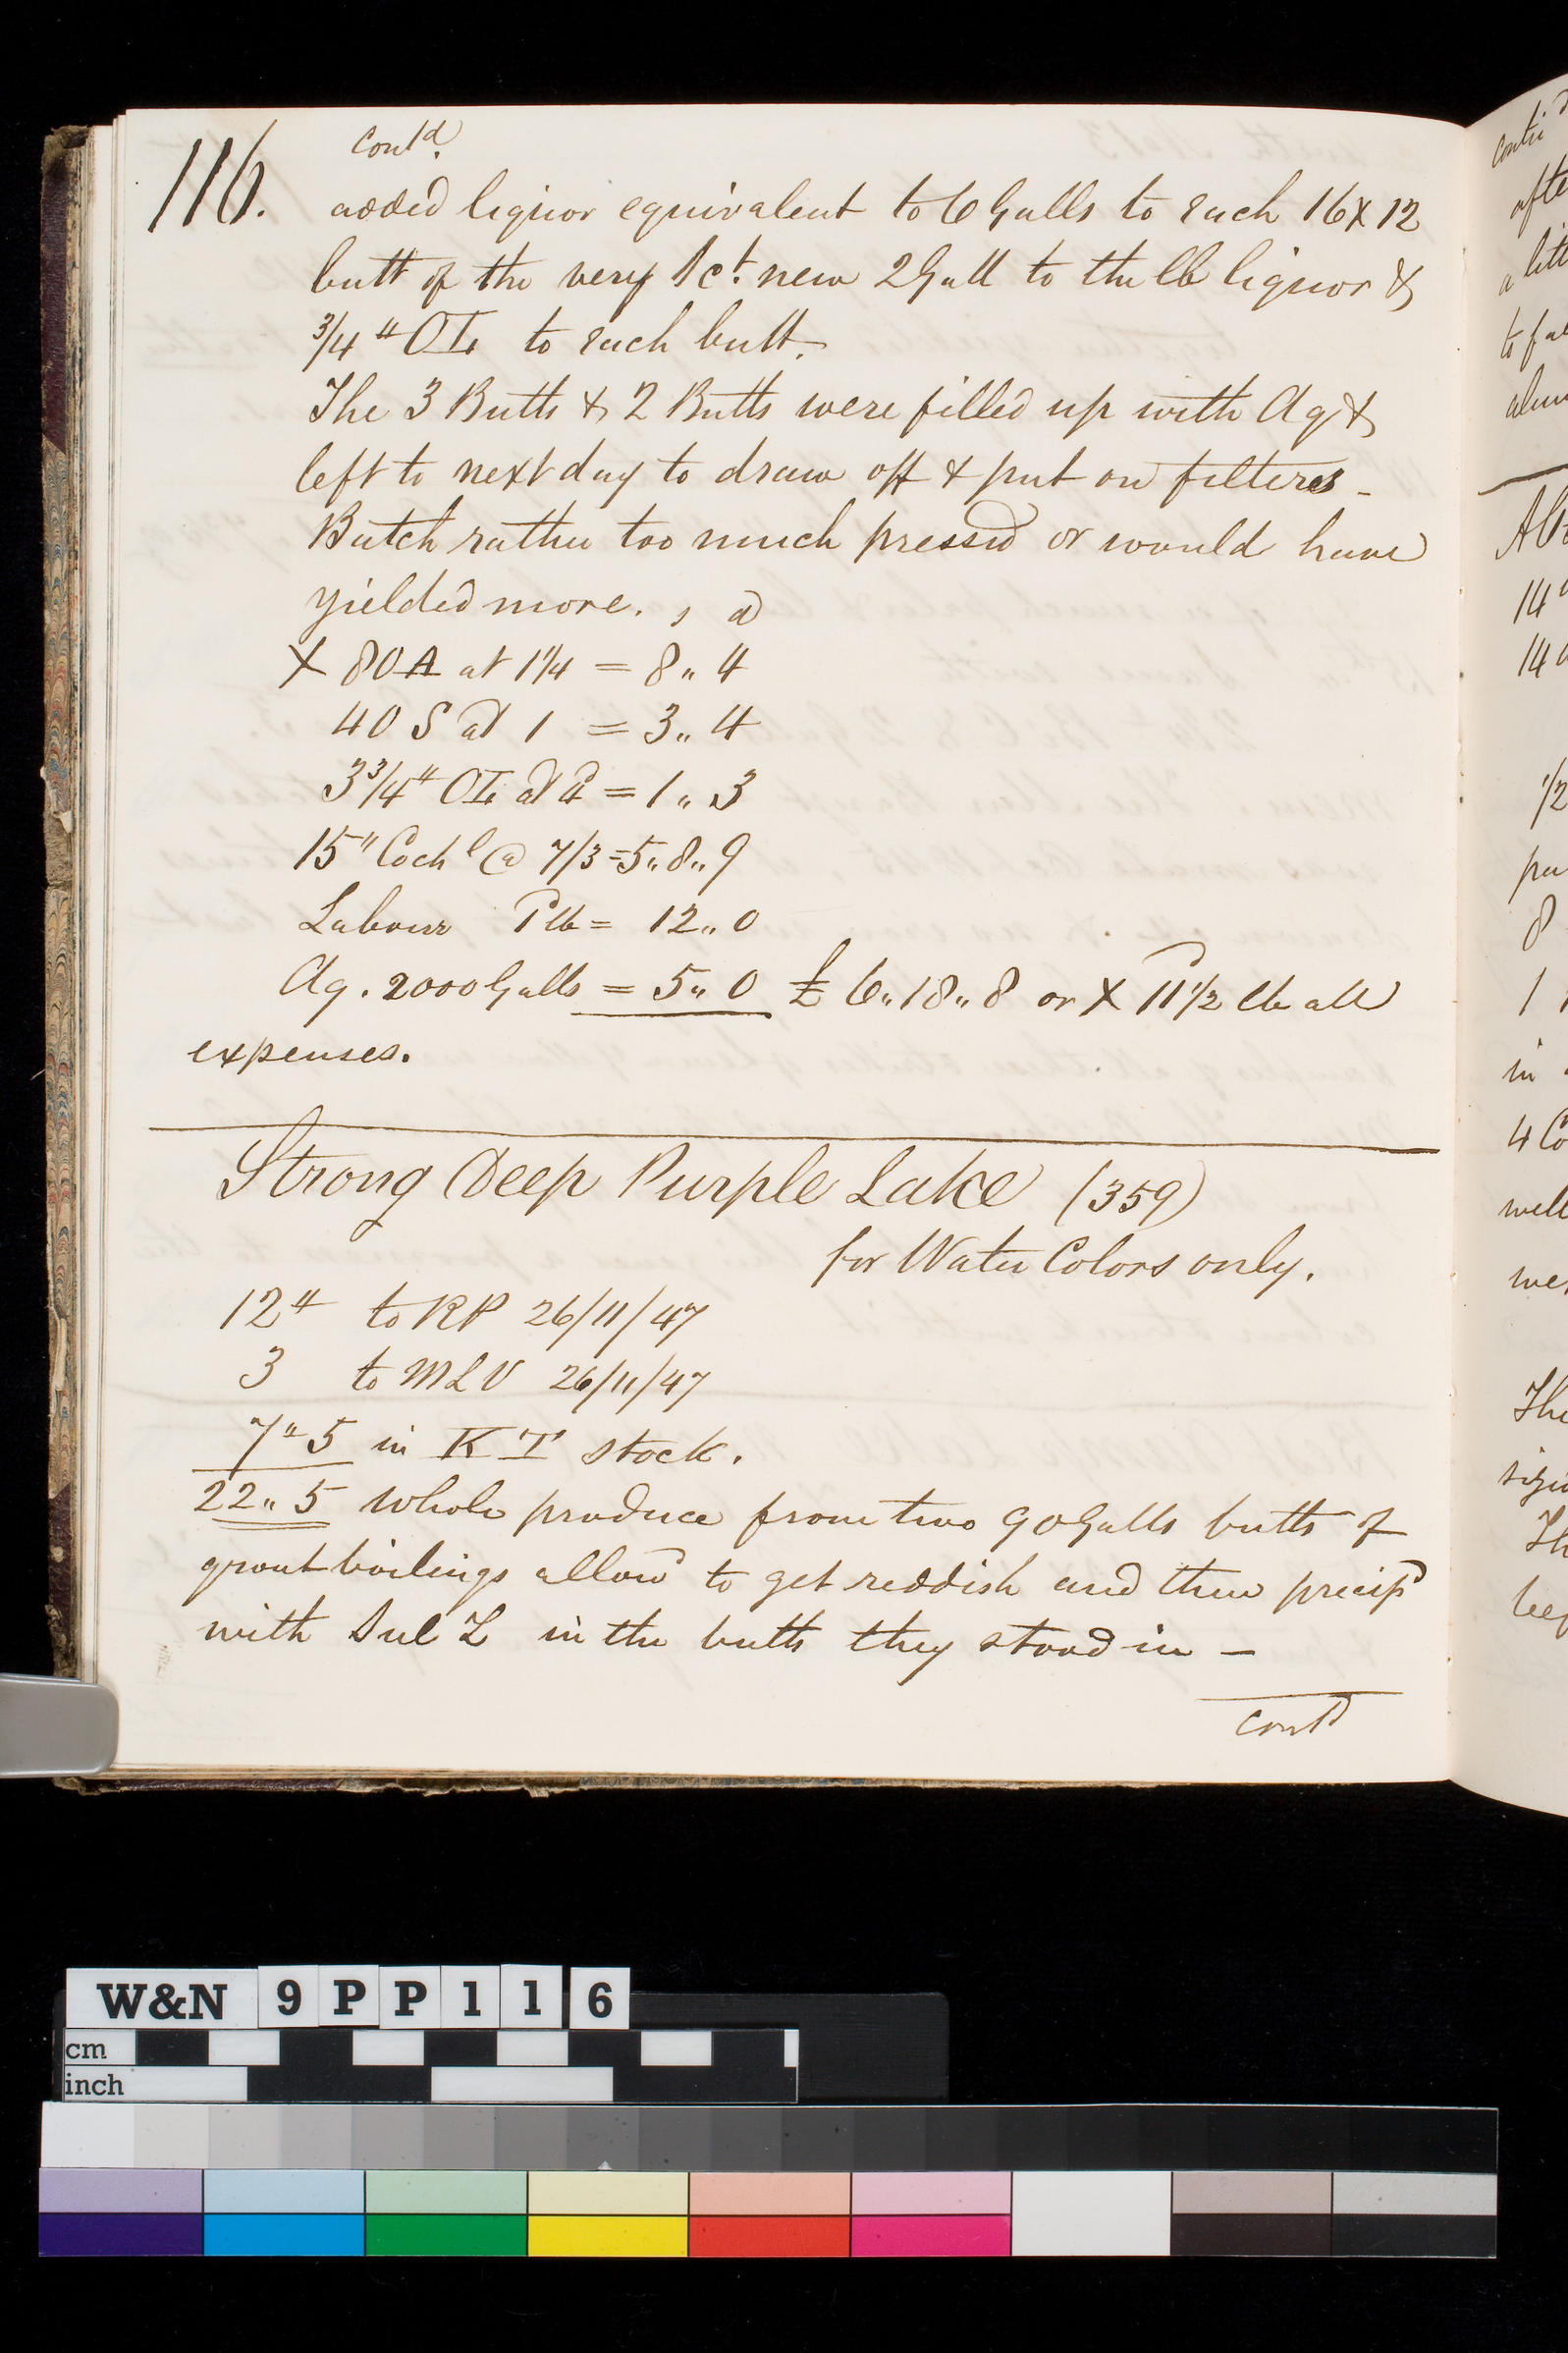 116.
Cont.d
added liquor equivalent to 6 Galls to each 16 X 12
butt of the very 1ct. new 2 Gall to the lb liquor &
3/4 " OL to each butt.
The 3 Butts & 2 Butts were filled up with Aq &
left to next day to draw off & put on filters -
Batch rather too much pressed or would have
yielded more. s d
X 80 A at 1 1/4 = 8 " 4
40 S at 1 = 3 " 4
3 3/4 " OL at 4 = 1 " 3
15 " Coch l @ 7/3 = 5 " 8 " 9
Labour P lb = 12 " 0
Aq. 2000 Galls = 5 " 0 £ 6 " 18 " 8 or X 11 1/2 lb all
expenses.
Strong Deep Purple Lake (359)
for Water Colors only.
12 " to RP 26/11/47
3 to MLV 26/11/47
7 " 5 in KT stock.
22 " 5 Whole produce from two 90 Galls butts of
grout boilings allowd to get reddish and then precipd
with Sul Z in the butts they stood in —
contd
contd
afte
a litt
to fa
alum
14
14
1/2
pu
8
1
in
4 Co
well
we
The
size
Th
W&N 9PP116
cm
inch